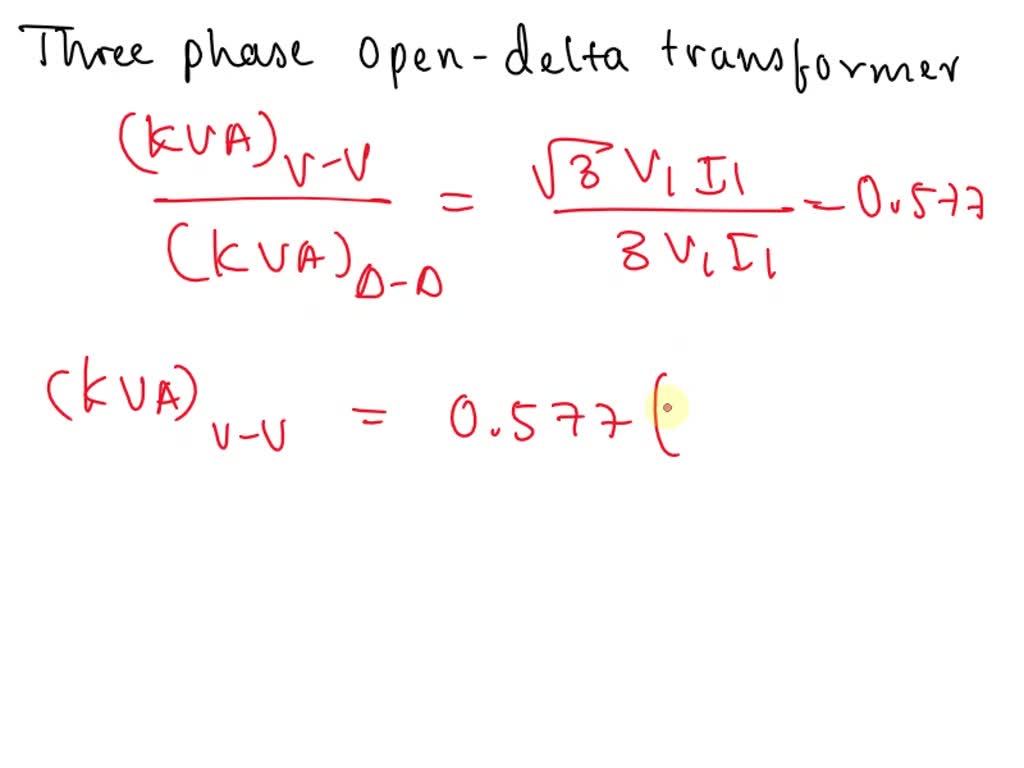 Three phase open-delta transformer
(KVA)V-V / (KVA)Δ-Δ = √3 V1 I1 / 3 V1 I1 = 0.577
(KVA)V-V = 0.577 (